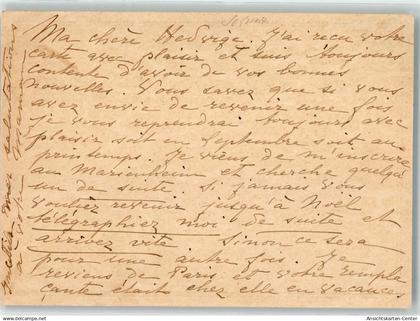 Ma chère Hedwige. J'ai reçu votre
carte avec plaisir et suis toujours
contente d'avoir de vos bonnes
nouvelles. Vous savez que si vous
avez envie de revenir une fois
je vous reprendrai toujours avec
plaisir soit en Septembre soit au
printemps. Je viens de m'inscrire
au Marienheim et cherche quelqu'
un de suite. Si jamais vous
vouliez revenir jusqu'à Noël
télégraphiez moi de suite et
arrivez vite. Sinon ce sera
pour une autre fois. Je
reviens de Paris et votre remplaçante
était chez elle en vacance.
mes salutations
à votre maman
www.ansichtskarten-center.de
Ansichtskarten-Center.de